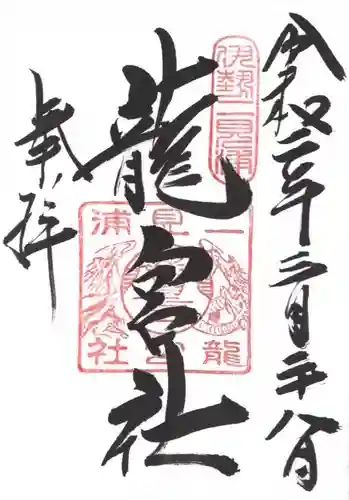 令和二年三月二十八日
伊勢二見浦
龍宮社
奉拝
二見浦
龍宮社